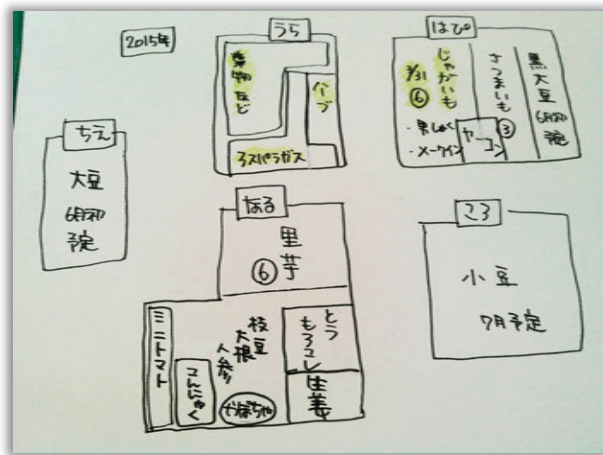 2015年
うら
葉物など
ナブ
アスパラガス
はぴ
じゃがいも
3/31
⑥
・男しゃく
・メークイン
さつまいも
③
ヤーコン
黒大豆
6月初
予定
ちえ
大豆
6月初
予定
なる
里芋
⑥
ミニトマト
こんにゃく
人参
大根
枝豆
かぼちゃ
とう
もろコし
生姜
ころ
小豆
7月予定